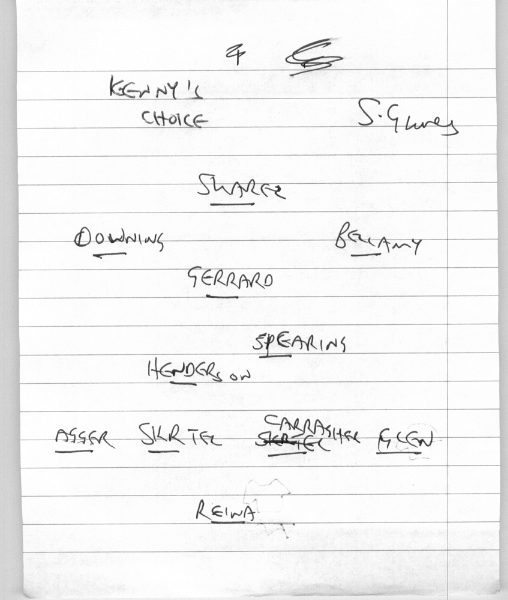 KENNY'S
CHOICE
SUAREZ
DOWNING BELLAMY
GERRARD
SPEARING
HENDERSON
CARRAGHER
AGGER SKRTEL SKRTEL GLEN
REINA